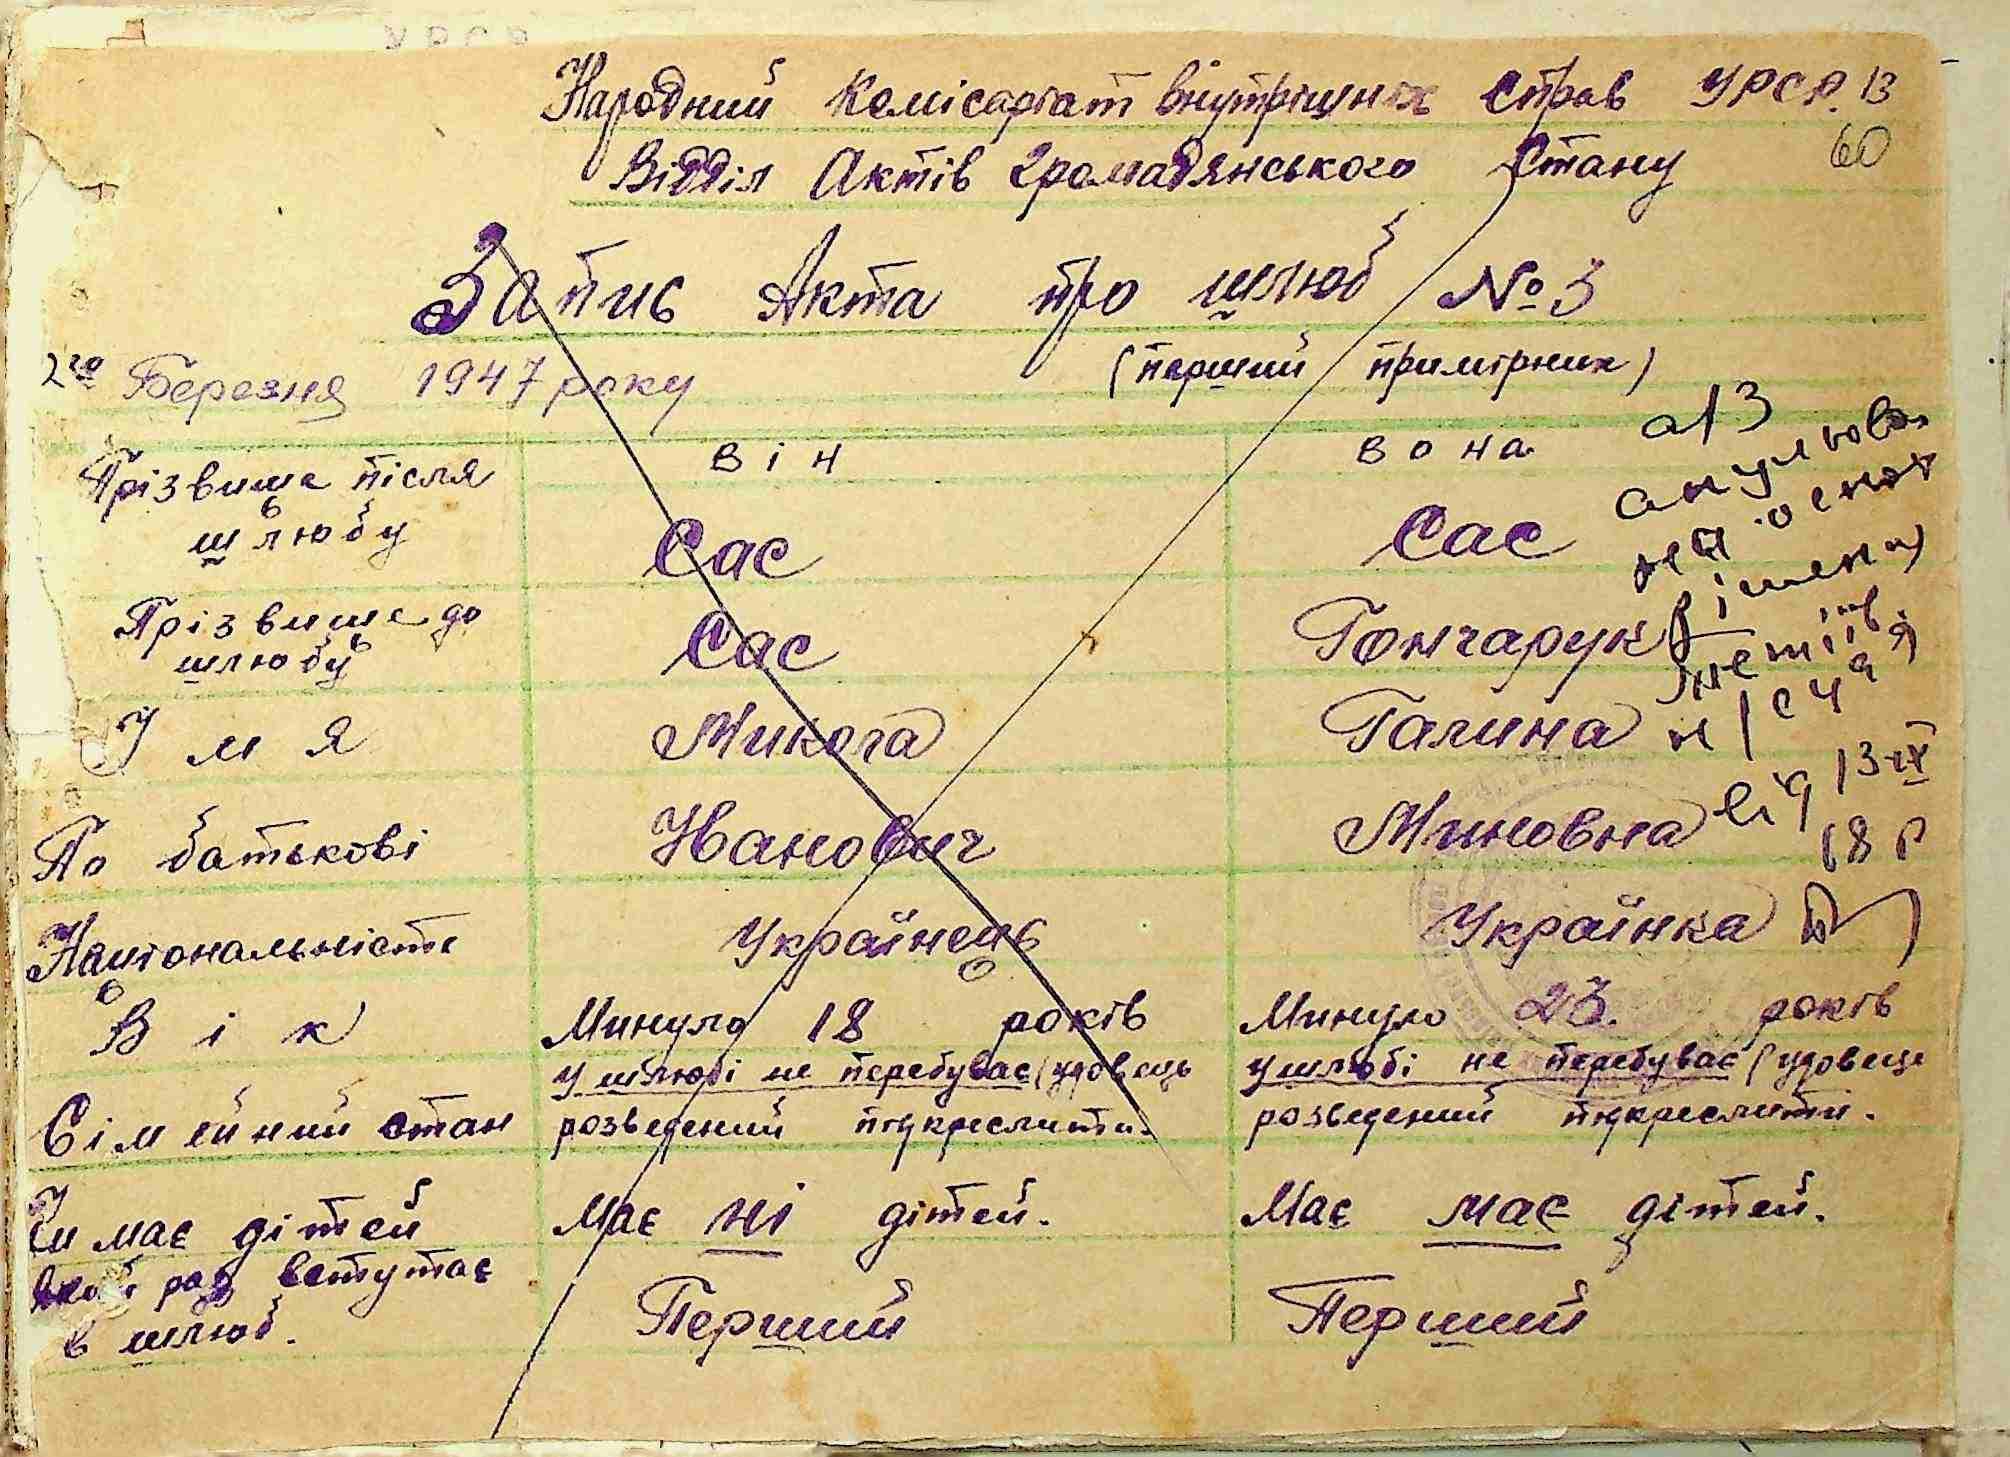 Народний Комісаріат внутрішніх Справ УРСР. 13
60
Відділ Актів громадянського Стану
Запис Акта про шлюб № 3
(перший примірник)
2го Березня 1947 року
він вона
Прізвище після
шлюбу
Сас Сас
Прізвище до
шлюбу
Сас Гончарук
Імя Микола Галина
По батькові Иванович Миновна
Національність Українець Українка
Вік Минуло 18 років Минуло 23 років
Сімейний стан
У шлюбі не перебуває (удовець
розведений підкреслити.
У шлюбі не перебуває (удовеце
розведений підкреслити.
Чи має дітей Має ні дітей. Має має дітей.
Який раз вступає
в шлюб.
Перший Перший
а/з
анульов.
на основ
рішення
від 13-IX
68 р